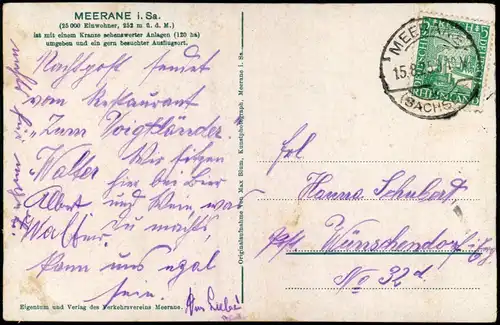 MEERANE i. Sa.
(25 000 Einwohner, 252 m ü. d. M.)
ist mit einem Kranze sehenswerter Anlagen (120 ha)
umgeben und ein gern besuchter Ausflugsort.
Nachpost sendet
vom Restaurant
"Zum Voigtländer."
Walter Wir sitzen
hier bei Bier
Albert und Wein, was
Walter. Du machst,
kann uns egal
sein.
Eigentum und Verlag des Verkehrsvereins Meerane.
Originalaufnahme von Max Blum, Kunstphotograph, Meerane i. Sa.
MEERANE
15.8
(SACHS)
Frl
Hanna Schubert
Wünschendorf
No 32d.